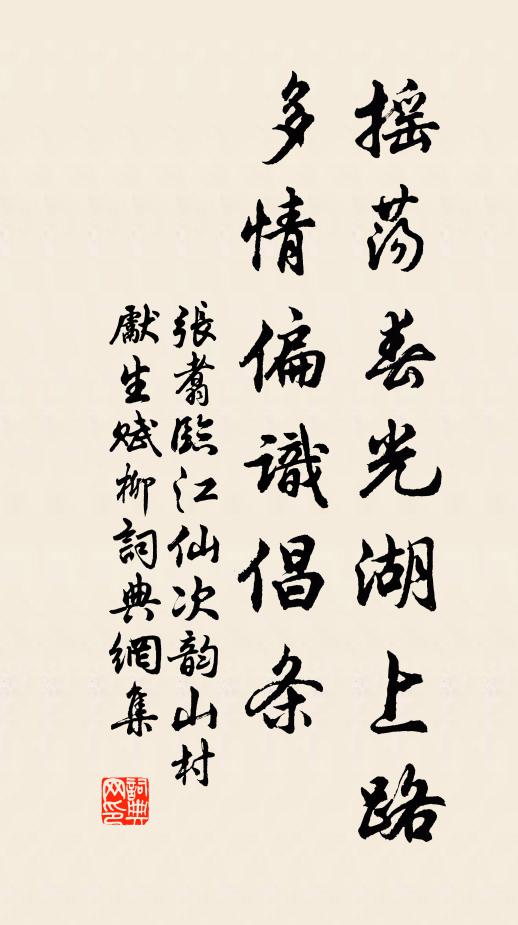 摇荡春光湖上路
多情偏識倡条
張翥臨江仙次韵山村
獻生赋柳詞典網集
詞典
网印